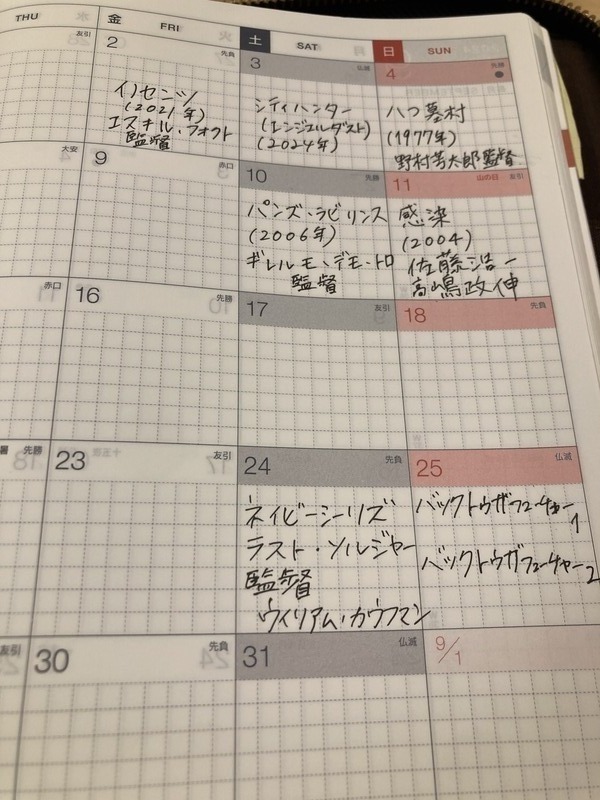 THU
金 FRI
土 SAT
日 SUN
友引
2 先負
イノセンツ
(2021年)
エスキル・フォクト
監督
3 仏滅
シティハンター
(エンジェルダスト)
(2024年)
4 先勝
八つ墓村
(1977年)
野村芳太郎監督
大安
9 赤口
10 先勝
パンズ・ラビリンス
(2006年)
ギレルモ・デモ・トロ
監督
11 山の日 友引
感染
(2004)
佐藤浩一
高嶋政伸
赤口
16 先勝
17 友引
18 先負
暑 先勝
23 友引
24 先負
ネイビーシーリズ
ラスト・ソルジャー
監督
ウィリアム・カウフマン
25 仏滅
バックトゥザフューチャー
1
バックトウザフューチャー2
友引
30 先負
31 仏滅
9/1